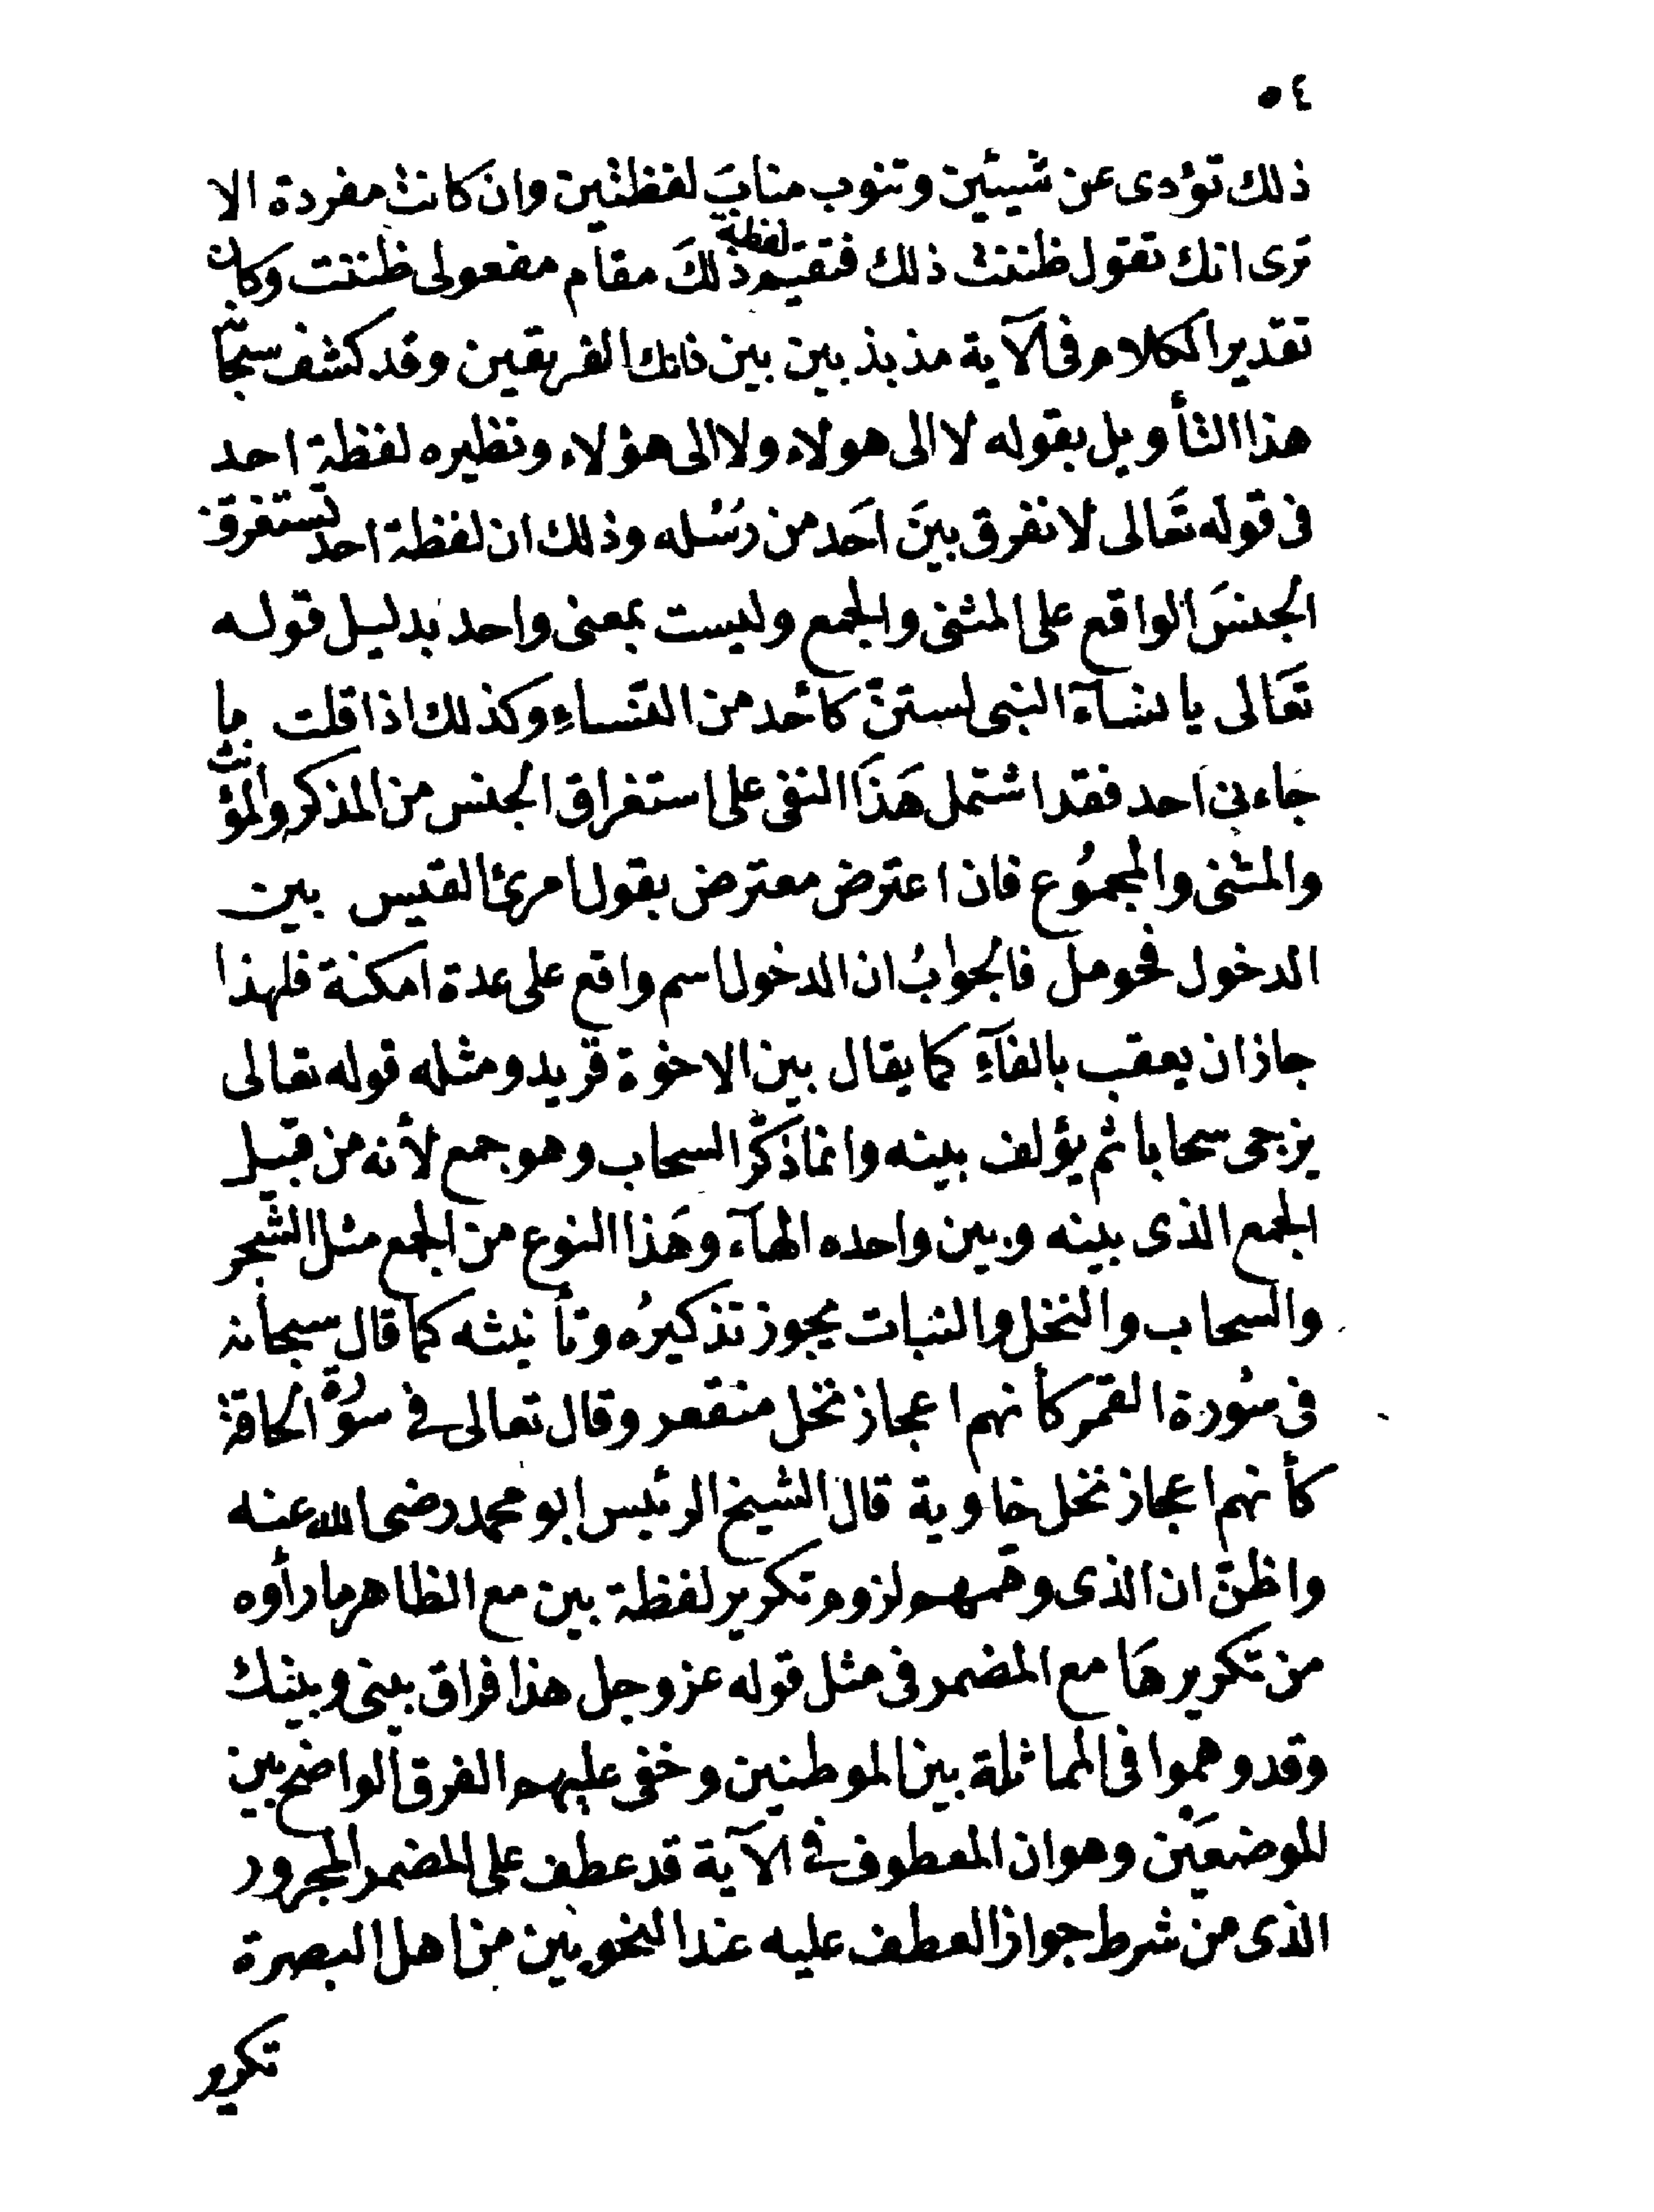 ٥٤
ذلك تؤدى عن شيئين وتنوب مناب لفظتين وان كانت مفردة الا
ترى انك تقول ظننت ذلك فتقيم لفظة ذلك مقام مفعولى ظننت وكان
تقدير الكلام فى الآية مذبذبين بين ذانك الفريقين وقد كشف سبحانه
هذا التأويل بقوله لا الى هولاء ولا الى هؤلاء ونظيره لفظة احد
فى قوله تعالى لا نفرق بين احد من رسله وذلك ان لفظة احد تستغرق
الجنس الواقع على المثنى والجمع وليست بمعنى واحد بدليل قوله
تعالى يا نساء النبى لستن كأحد من النساء وكذلك اذا قلت ما
جاءنى احد فقد اشتمل هذا النفى على استغراق الجنس من المذكر والمؤنث
والمثنى والمجموع فان اعترض معترض بقول امرئ القيس بين
الدخول فحومل فالجواب ان الدخول اسم واقع على عدة امكنة فلهذا
جاز ان يعقب بالفاء كما يقال بين الاخوة فزيد ومثله قوله تعالى
يزجى سحابا ثم يؤلف بينه وانما ذكر السحاب وهو جمع لأنه من قبيل
الجمع الذى بينه وبين واحده الهاء وهذا النوع من الجمع مثل الشجر
والسحاب والنخل والنبات يجوز تذكيره وتأنيثه كما قال سبحانه
فى سورة القمر كأنهم اعجاز نخل منقعر وقال تعالى فى سورة الحاقة
كأنهم اعجاز نخل خاوية قال الشيخ الرئيس ابو محمد رضى الله عنه
واظن ان الذى وهمهم لزوم تكرير لفظة بين مع الظاهر ما رأوه
من تكريرها مع المضمر فى مثل قوله عز وجل هذا فراق بينى وبينك
وقد وهموا فى المماثلة بين الموطنين وخفى عليهم الفرق الواضح بين
الموضعين وهو ان المعطوف فى الآية قد عطف على المضمر المجرور
الذى من شرط جواز العطف عليه عند النحويين من اهل البصرة
تكرير